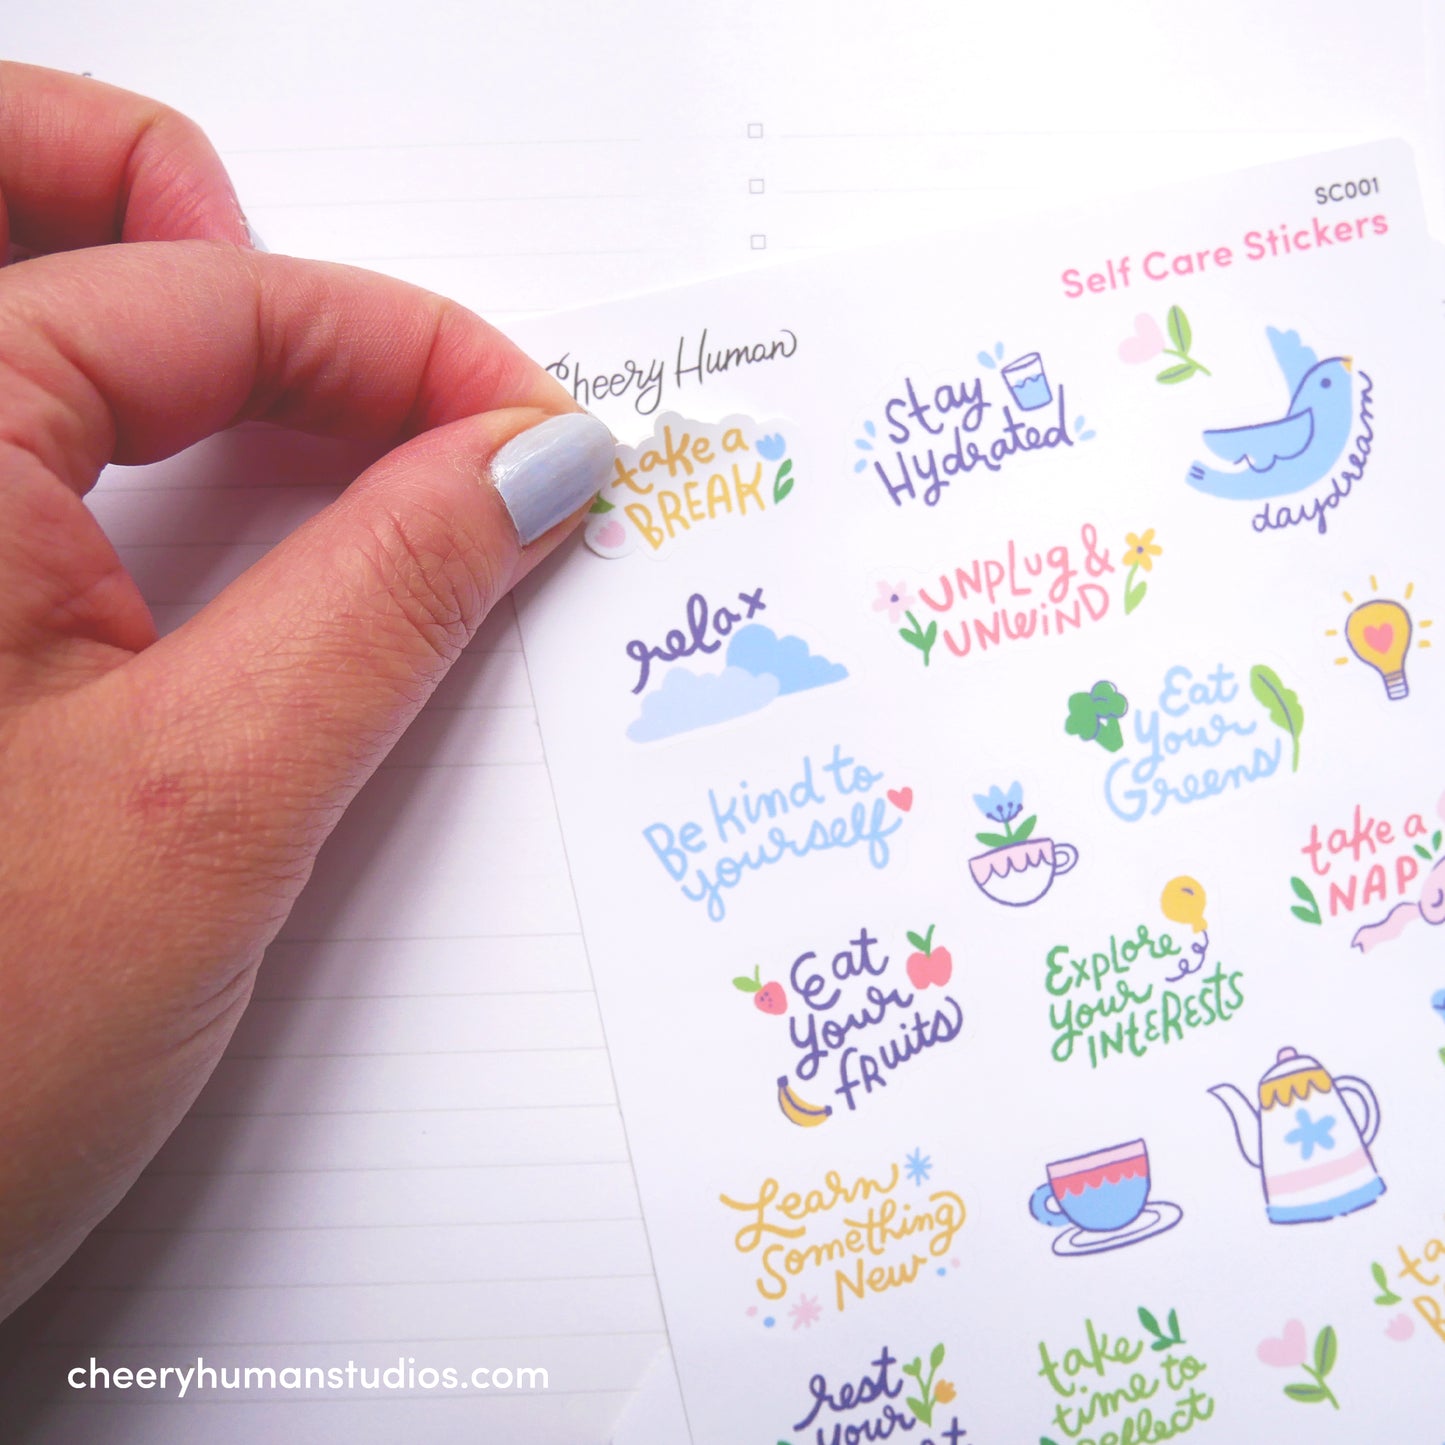 SC001
Self Care Stickers
Cheery Human
take a
BREAK
Stay
Hydrated
daydream
relax
UNPLUG &
UNWIND
Eat
your
Greens
Be kind to
yourself
take a
NAP
Eat
your
fRuits
Explore
your
INtERests
Learn
Something
New
rest
your
take
time to
reflect
cheeryhumanstudios.com